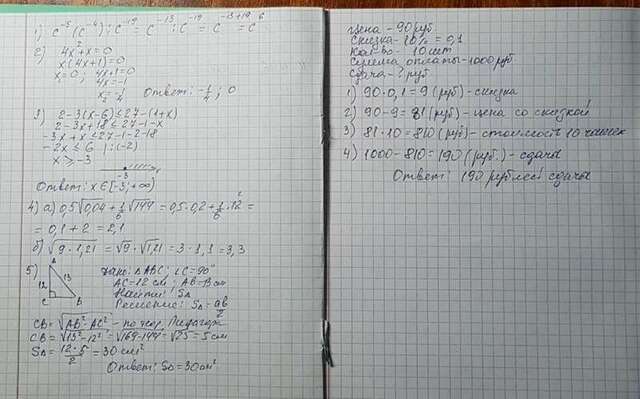 1) c⁻⁵(c⁻⁴) : c⁻¹⁹ = c⁻¹³ : c⁻¹⁹ = c⁻¹³⁺¹⁹ = c⁶
2) 4x² + x = 0
x(4x+1)=0
x₁=0; 4x+1=0
4x=-1
x₂=-1/4 Ответ: -1/4; 0
3) 2-3(x-6) ≤ 27-(1+x)
2-3x+18 ≤ 27-1-x
-3x+x ≤ 27-1-2-18
-2x ≤ 6 | :(-2)
x ≥ -3
-3
Ответ: x ∈ [-3; +∞)
4) а) 0,5√0,04 + 1/6 √144 = 0,5·0,2 + 1/6 · 12 =
= 0,1 + 2 = 2,1
б) √9·1,21 = √9 · √1,21 = 3 · 1,1 = 3,3
5) Дано: △ABC; ∠C=90°
A 12 13 C B
AC=12 см; AB=13 см
Найти: S△
Решение: S△ = ab/2
CB = √AB²-AC² - по теор. Пифагора
CB = √13²-12² = √169-144 = √25 = 5 см
S△ = 12·5/2 = 30 см²
Ответ: S△ = 30 см²
Цена - 90 руб.
Скидка - 10% = 0,1
Кол-во - 10 шт
Сумма оплаты - 1000 руб.
Сдача - ? руб.
1) 90·0,1 = 9 (руб) - скидка
2) 90-9 = 81 (руб) - цена со скидкой
3) 81·10 = 810 (руб) - стоимость 10 чашек
4) 1000-810 = 190 (руб.) - сдача
Ответ: 190 рублей сдачи